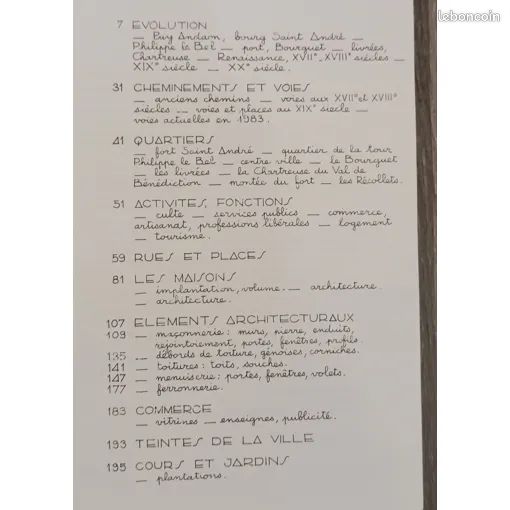 leboncoin
7 EVOLUTION
— Puy Andam, bourg Saint André —
Philippe le Bel — port, Bourguet — livrées,
Chartreuse — Renaissance, XVIIᵉ-XVIIIᵉ siècles —
XIXᵉ siècle — XXᵉ siècle.
31 CHEMINEMENTS ET VOIES
— anciens chemins — voies aux XVIIᵉ et XVIIIᵉ
siècles — voies et places au XIXᵉ siècle —
voies actuelles en 1983.
41 QUARTIERS
— fort Saint André — quartier de la tour
Philippe le Bel — centre ville — le Bourguet
— les livrées — la Chartreuse du Val de
Bénédiction — montée du fort — les Récollets.
51 ACTIVITES, FONCTIONS
— culte — services publics — commerce,
artisanat, professions libérales — logement
— tourisme.
59 RUES ET PLACES
81 LES MAISONS
— implantation, volume — architecture
— architecture.
107 ELEMENTS ARCHITECTURAUX
109 — maçonnerie : murs, pierre, enduits,
rejointoiement, portes, fenêtres, profils.
135 — débords de toiture, génoises, corniches.
141 — toitures : toits, souches.
147 — menuiserie : portes, fenêtres, volets.
177 — ferronnerie.
183 COMMERCE
— vitrines — enseignes, publicité.
193 TEINTES DE LA VILLE
195 COURS ET JARDINS
— plantations.